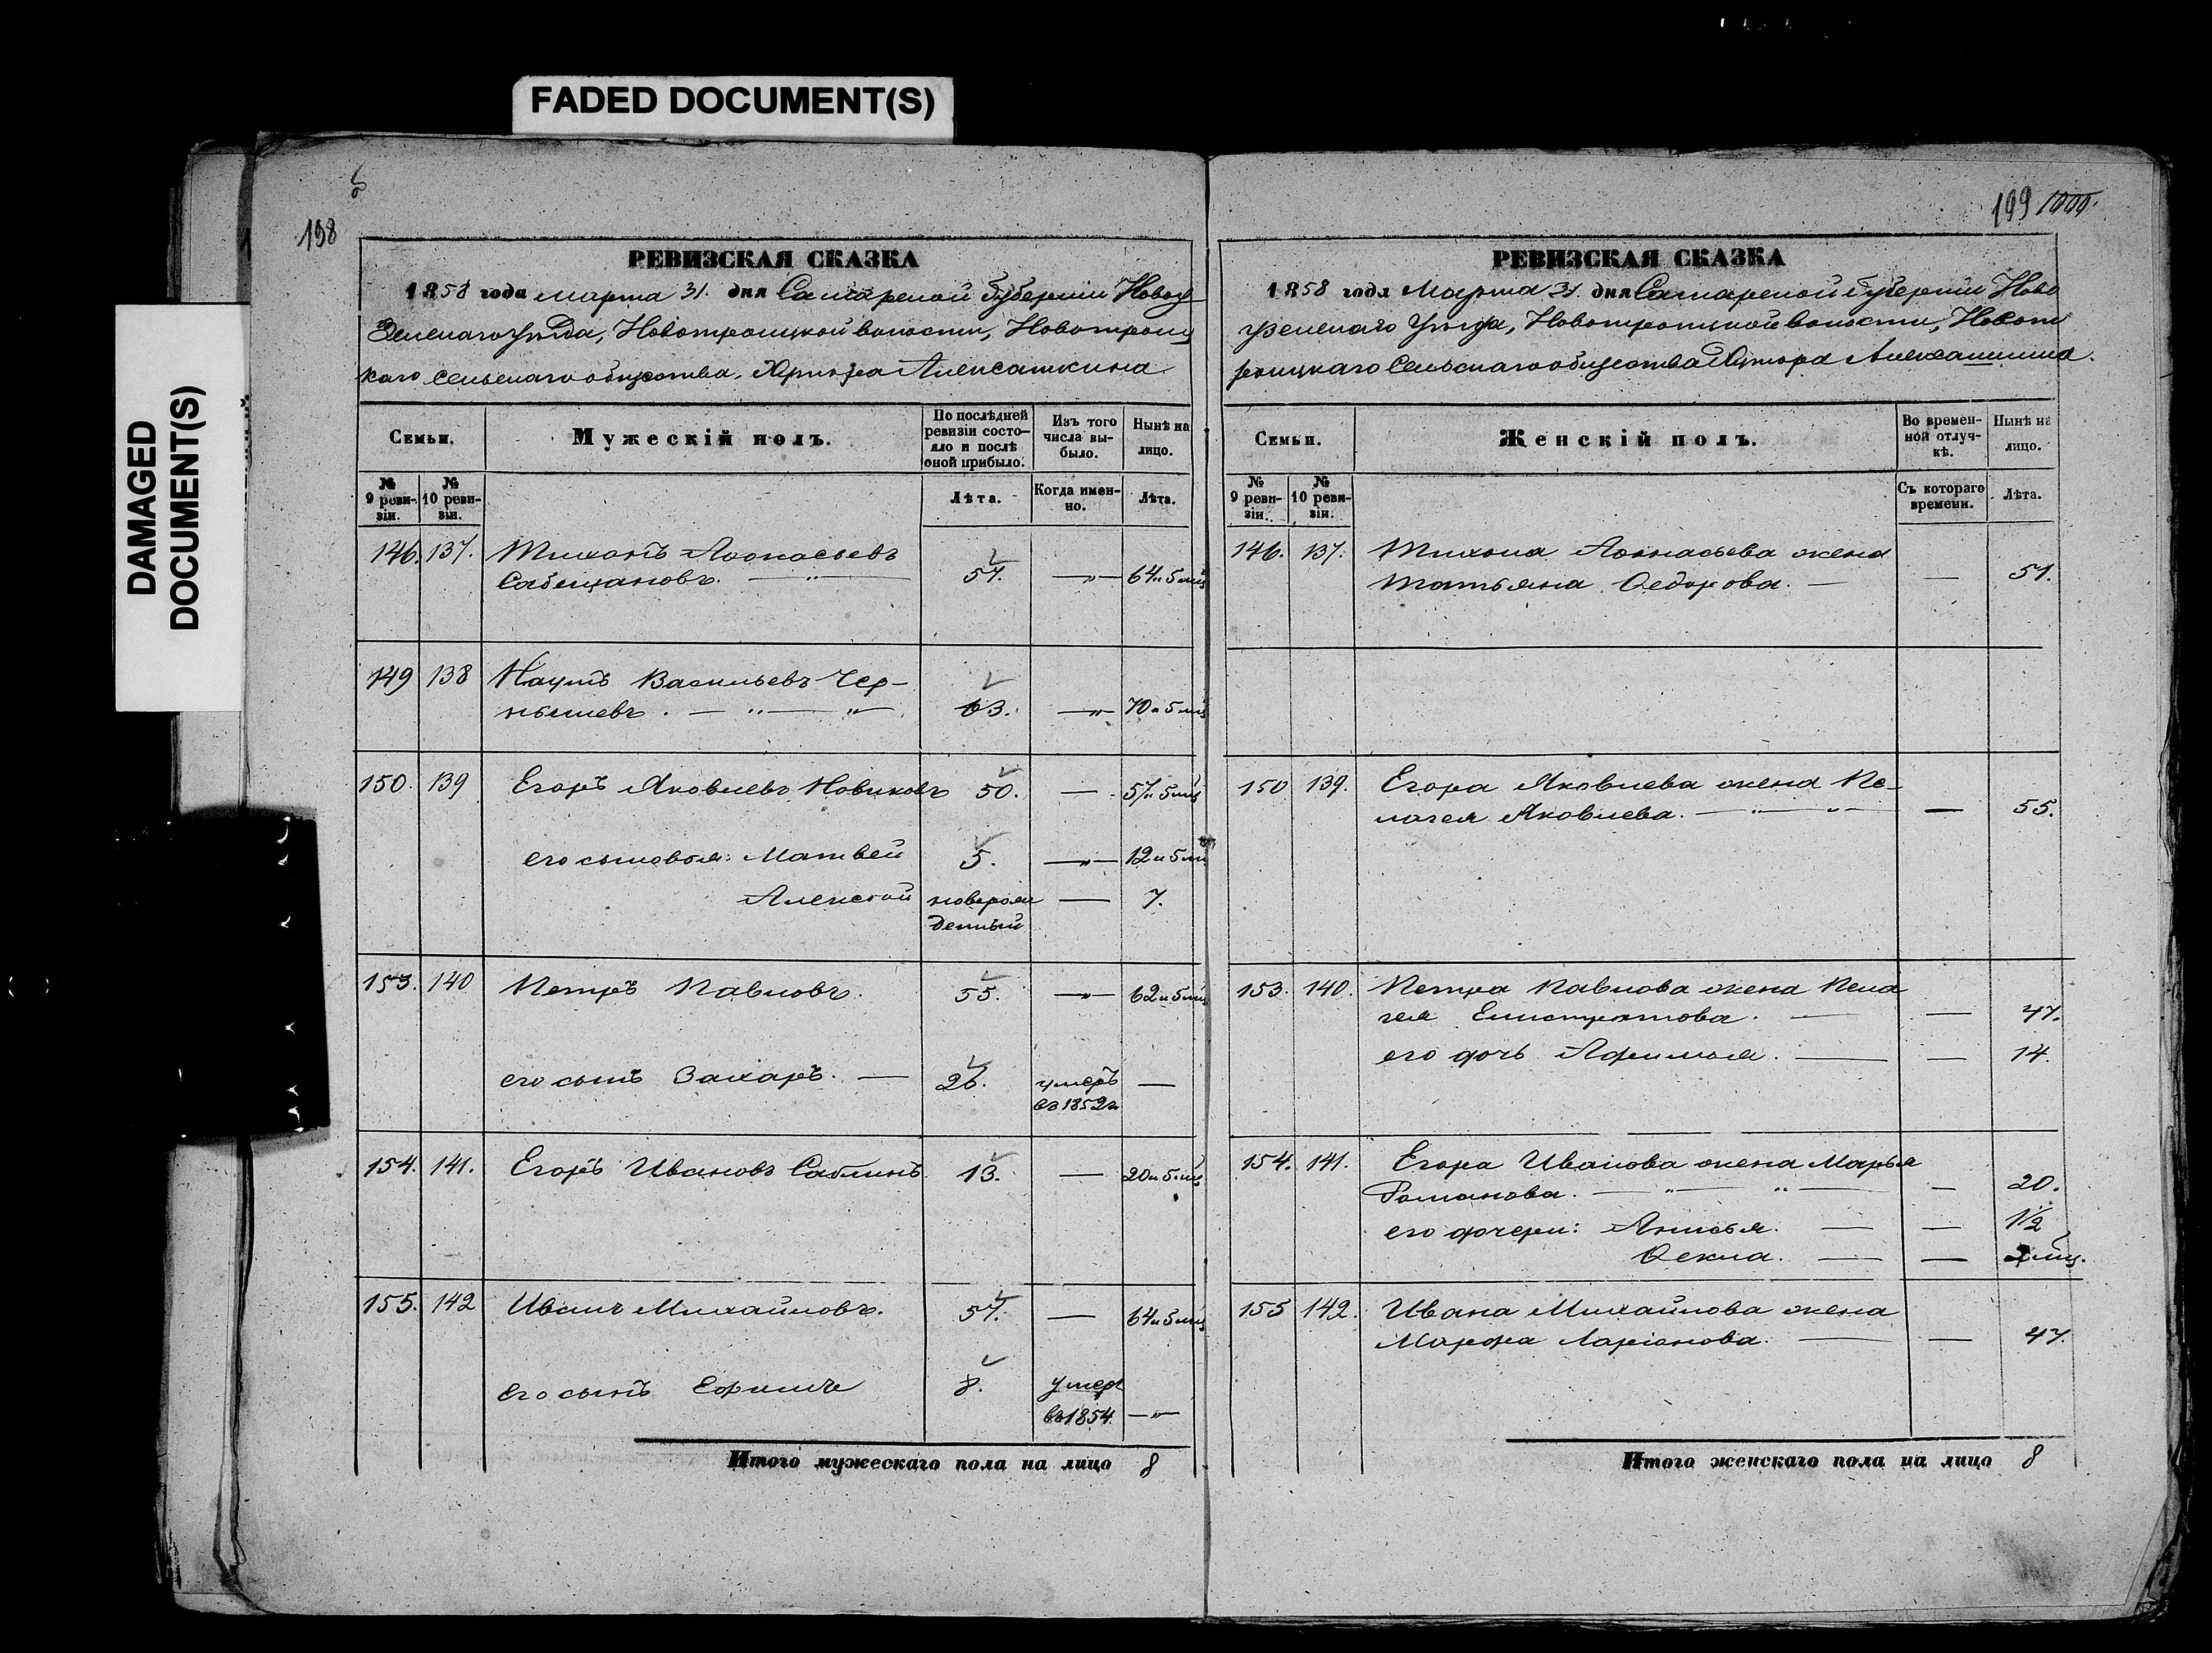 FADED DOCUMENT(S)
DAMAGED
DOCUMENT(S)
198
РЕВИЗСКАЯ СКАЗКА
1858 года марта 31. дня Самарской Губернии Новоу
зенскаго уѣзда, Новотроицкой волости, Новотроиц
каго сельскаго общества, Хутора Алексашкина
Семьи.
Мужескій полъ.
По послѣдней ревизіи состо-
яло и послѣ
оной прибыло.
Изъ того
числа вы-
было.
Нынѣ на
лицо.
№
9 реви-
зіи.
№
10 реви-
зіи.
Лѣта.
Когда имен-
но.
Лѣта.
146. 137. Тихонъ Аѳонасьевъ
57. — „ — 64 и 5 мц
149 138 Наумъ Васильевъ Чер-
нышевъ. — „ — „ 63. — „ — 70 и 5 мц
150. 139 Егоръ Яковлевъ Новиковъ 50. — 57 и 5 мц
его сыновья: Матвей 5. — „ — 12 и 5 мц
Алексѣй новорож — 7.
денный
153. 140 Петръ Павловъ. 55. — „ — 62 и 5 мц
его сынъ Захаръ. — 26. умеръ —
въ 1852 г
154. 141. Егоръ Ивановъ Саблинъ. 13. — 20 и 5 мц
155. 142 Иванъ Михайловъ. 57. — 64 и 5 мц
Его сынъ Ефимъ 8. умеръ
въ 1854 — „ —
Итого мужескаго пола на лицо 8
199 1000.
РЕВИЗСКАЯ СКАЗКА
1858 года Марта 31. дня Самарской Губернии Ново
узенскаго Уѣзда, Новотроицкой волости, Новот
роицкаго Сельскаго общества Хутора Алексашкина.
Семьи.
Женскій полъ.
Во времен-
ной отлуч-
кѣ.
Нынѣ на
лицо.
№
9 реви-
зіи.
№
10 реви-
зіи.
Съ котораго
времени.
Лѣта.
146. 137. Тихона Аѳонасьева жена
Татьяна Ѳедорова. — — 51.
150 139. Егора Яковлева жена Пе-
лагея Яковлева. — „ — „ — — 55.
153. 140. Петра Павлова жена Пела
гея Елистратова. — — 47.
его дочь Афимья. — — 14.
154. 141. Егора Иванова жена Марья
Романова. — „ — „ — — 20.
его дочери: Анисья. — — 1 1/2
Ѳекла. — — мц.
155 142. Ивана Михайлова жена
Марфа Ларіонова. — — 47.
Итого женскаго пола на лицо 8